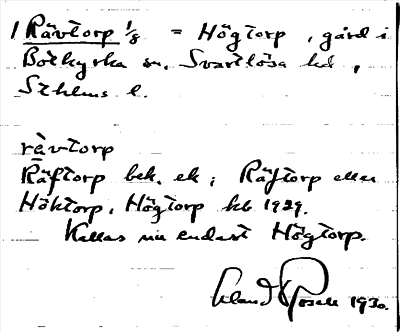 1 Rävtorp 1/8 = Högtorp, gård i
Botkyrka sn. Svartlösa hd,
Sthlms l.
rävtorp
Räftorp bek. ek; Räftorp eller
Höktorp, Högtorp kb 1929.
Kallas nu endast Högtorp.
1930.